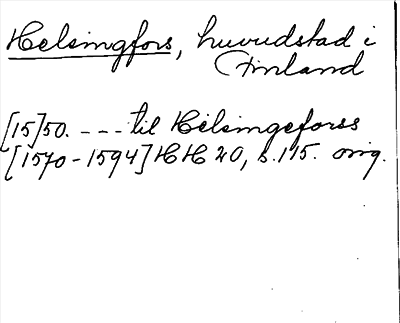 Helsingfors, huvudstad i
Finland
[15]50. --- til Helsingeforss
[1570-1594] HH 20, s. 115. orig.